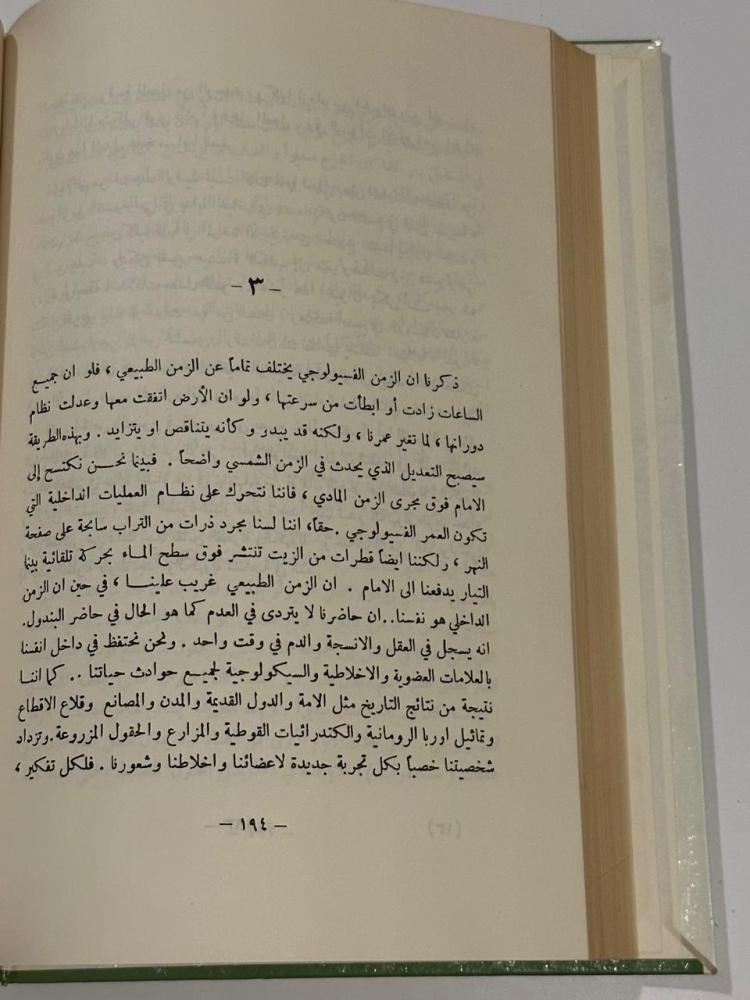 – ٣ –
ذكرنا ان الزمن الفسيولوجي يختلف تماماً عن الزمن الطبيعي ، فلو ان جميع
الساعات زادت أو ابطأت من سرعتها ، ولو ان الأرض اتفقت معها وعدلت نظام
دورانها ، لما تغير عمرنا ، ولكنه قد يبدو وكأنه يتناقص او يتزايد . وبهذه الطريقة
سيصبح التعديل الذي يحدث في الزمن الشمسي واضحاً . فبينما نحن نكتسح إلى
الامام فوق مجرى الزمن المادي ، فاننا نتحرك على نظام العمليات الداخلية التي
تكون العمر الفسيولوجي . حقاً، اننا لسنا مجرد ذرات من التراب سابحة على صفحة
النهر ، ولكننا ايضاً قطرات من الزيت تنتشر فوق سطح الماء بحركة تلقائية بينما
التيار يدفعنا الى الامام . ان الزمن الطبيعي غريب علينا ، في حين ان الزمن
الداخلي هو نفسنا.. ان حاضرنا لا يتردى في العدم كما هو الحال في حاضر البندول.
انه يسجل في العقل والانسجة والدم في وقت واحد . ونحن نحتفظ في داخل انفسنا
بالعلامات العضوية والاخلاطية والسيكولوجية لجميع حوادث حياتنا .. كما اننا
نتيجة من نتائج التاريخ مثل الامة والدول القديمة والمدن والمصانع وقلاع الاقطاع
وتماثيل اوربا الرومانية والكتدرائيات القوطية والمزارع والحقول المزروعة. وتزداد
شخصيتنا خصباً بكل تجربة جديدة لاعضائنا واخلاطنا وشعورنا . فلكل تفكير ،
– ١٩٤ –